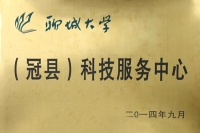 聊城大学
（冠县）科技服务中心
二〇一四年九月